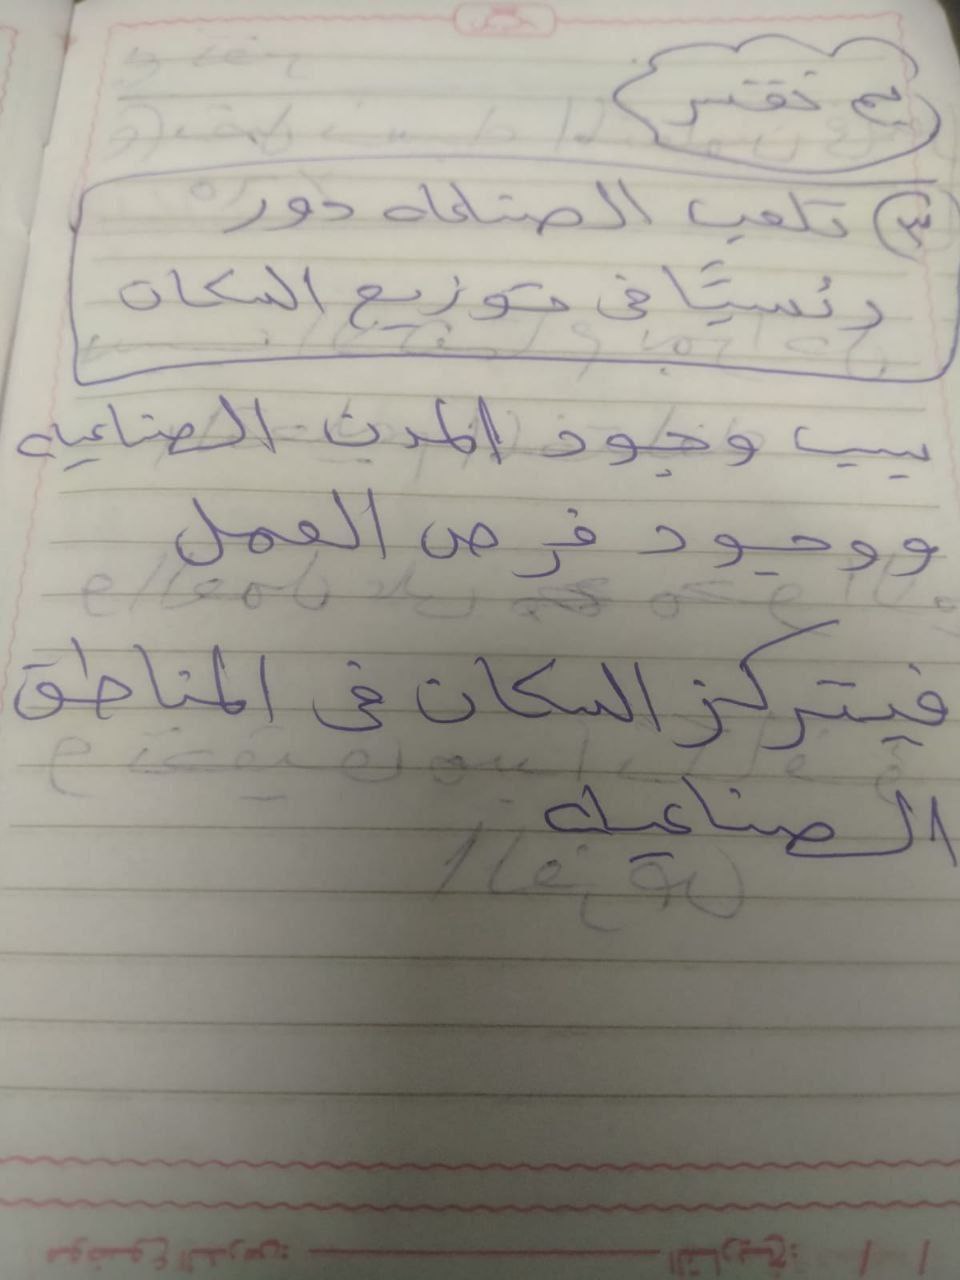 ج تفسر
٣ تلعب الصناعه دور
رئيسيًا فى توزيع السكان
بسبب وجود المدن الصناعيه
ووجود فرص العمل
فيتركز السكان فى المناطق
الصناعيه